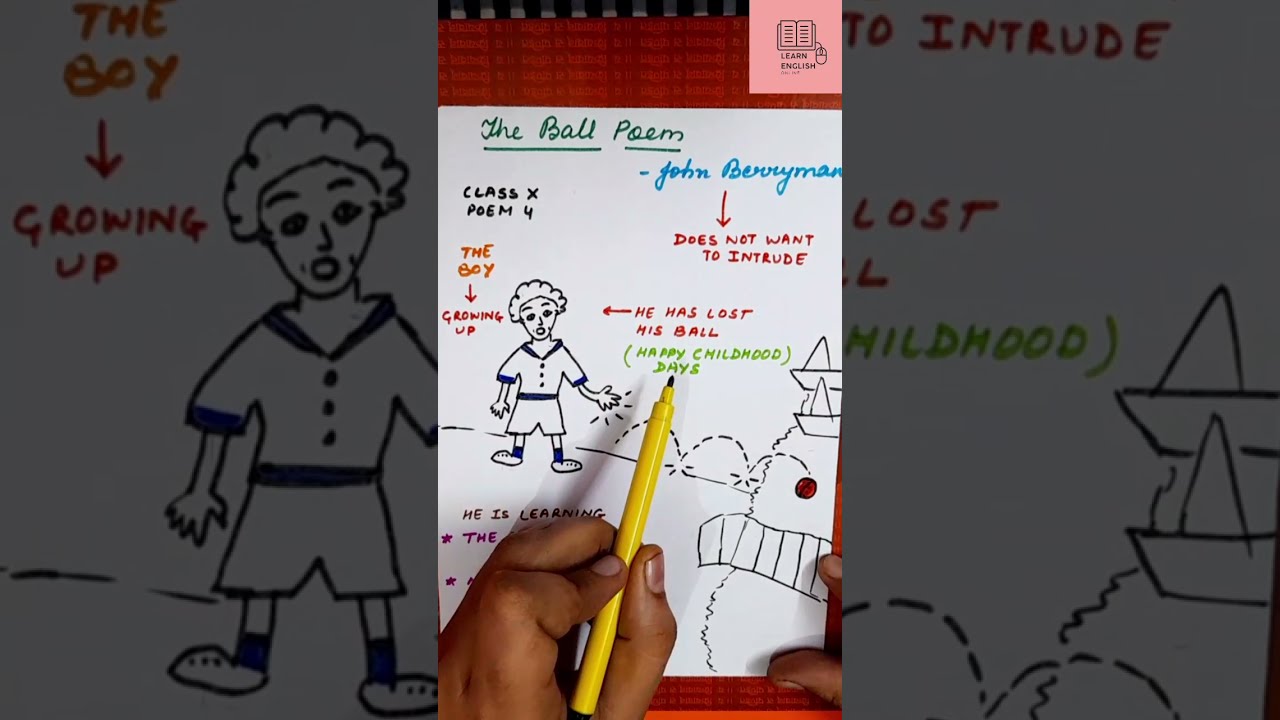 LEARN
ENGLISH
ONLINE
The Ball Poem
- John Berryman
CLASS X
POEM 4
DOES NOT WANT
TO INTRUDE
THE
BOY
GROWING
UP
HE HAS LOST
HIS BALL
(HAPPY CHILDHOOD)
DAYS
HE IS LEARNING
* THE
*
THE
BOY
GROWING
UP
TO INTRUDE
LOST
HILDHOOD)